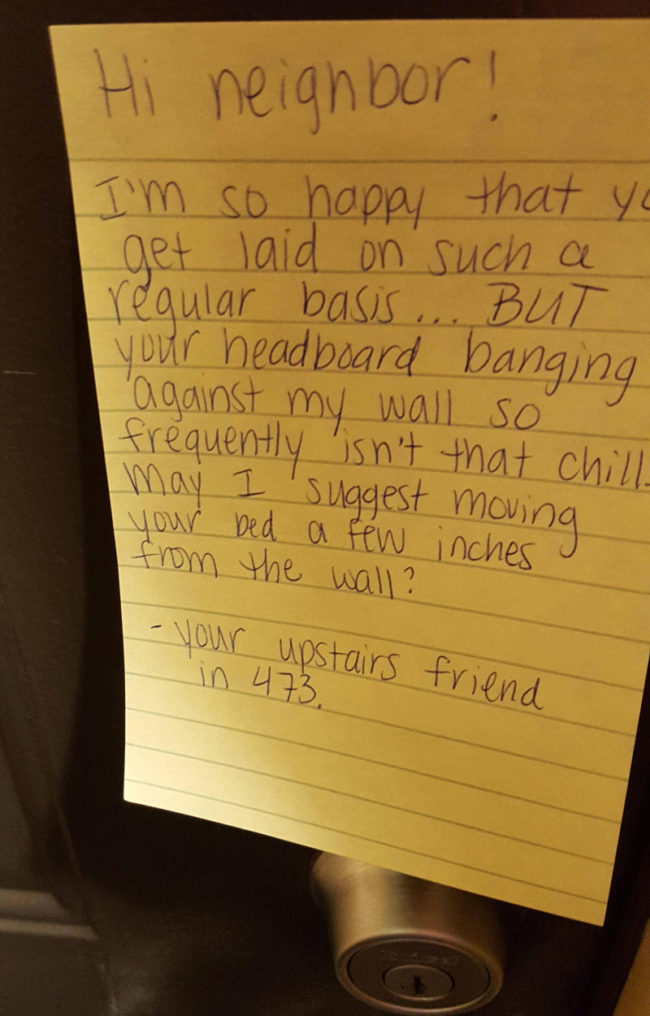 Hi neighbor!
I'm so happy that
get laid on such a
regular basis... BUT
your headboard banging
against my wall so
frequently isn't that chill.
May I suggest moving
your bed a few inches
from the wall?
- your upstairs friend
in 473.